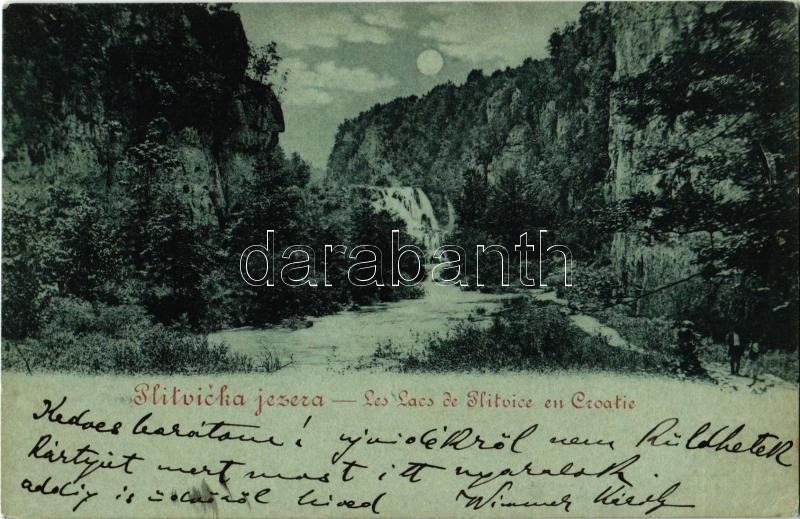 darabanth
Plitvička jezera — Les Lacs de Plitvice en Croatie
Kedves barátom! ujvidékről nem küldhetek
kártyát mert most itt nyaralok.
addig is üdvözöl hived Wimmer Király